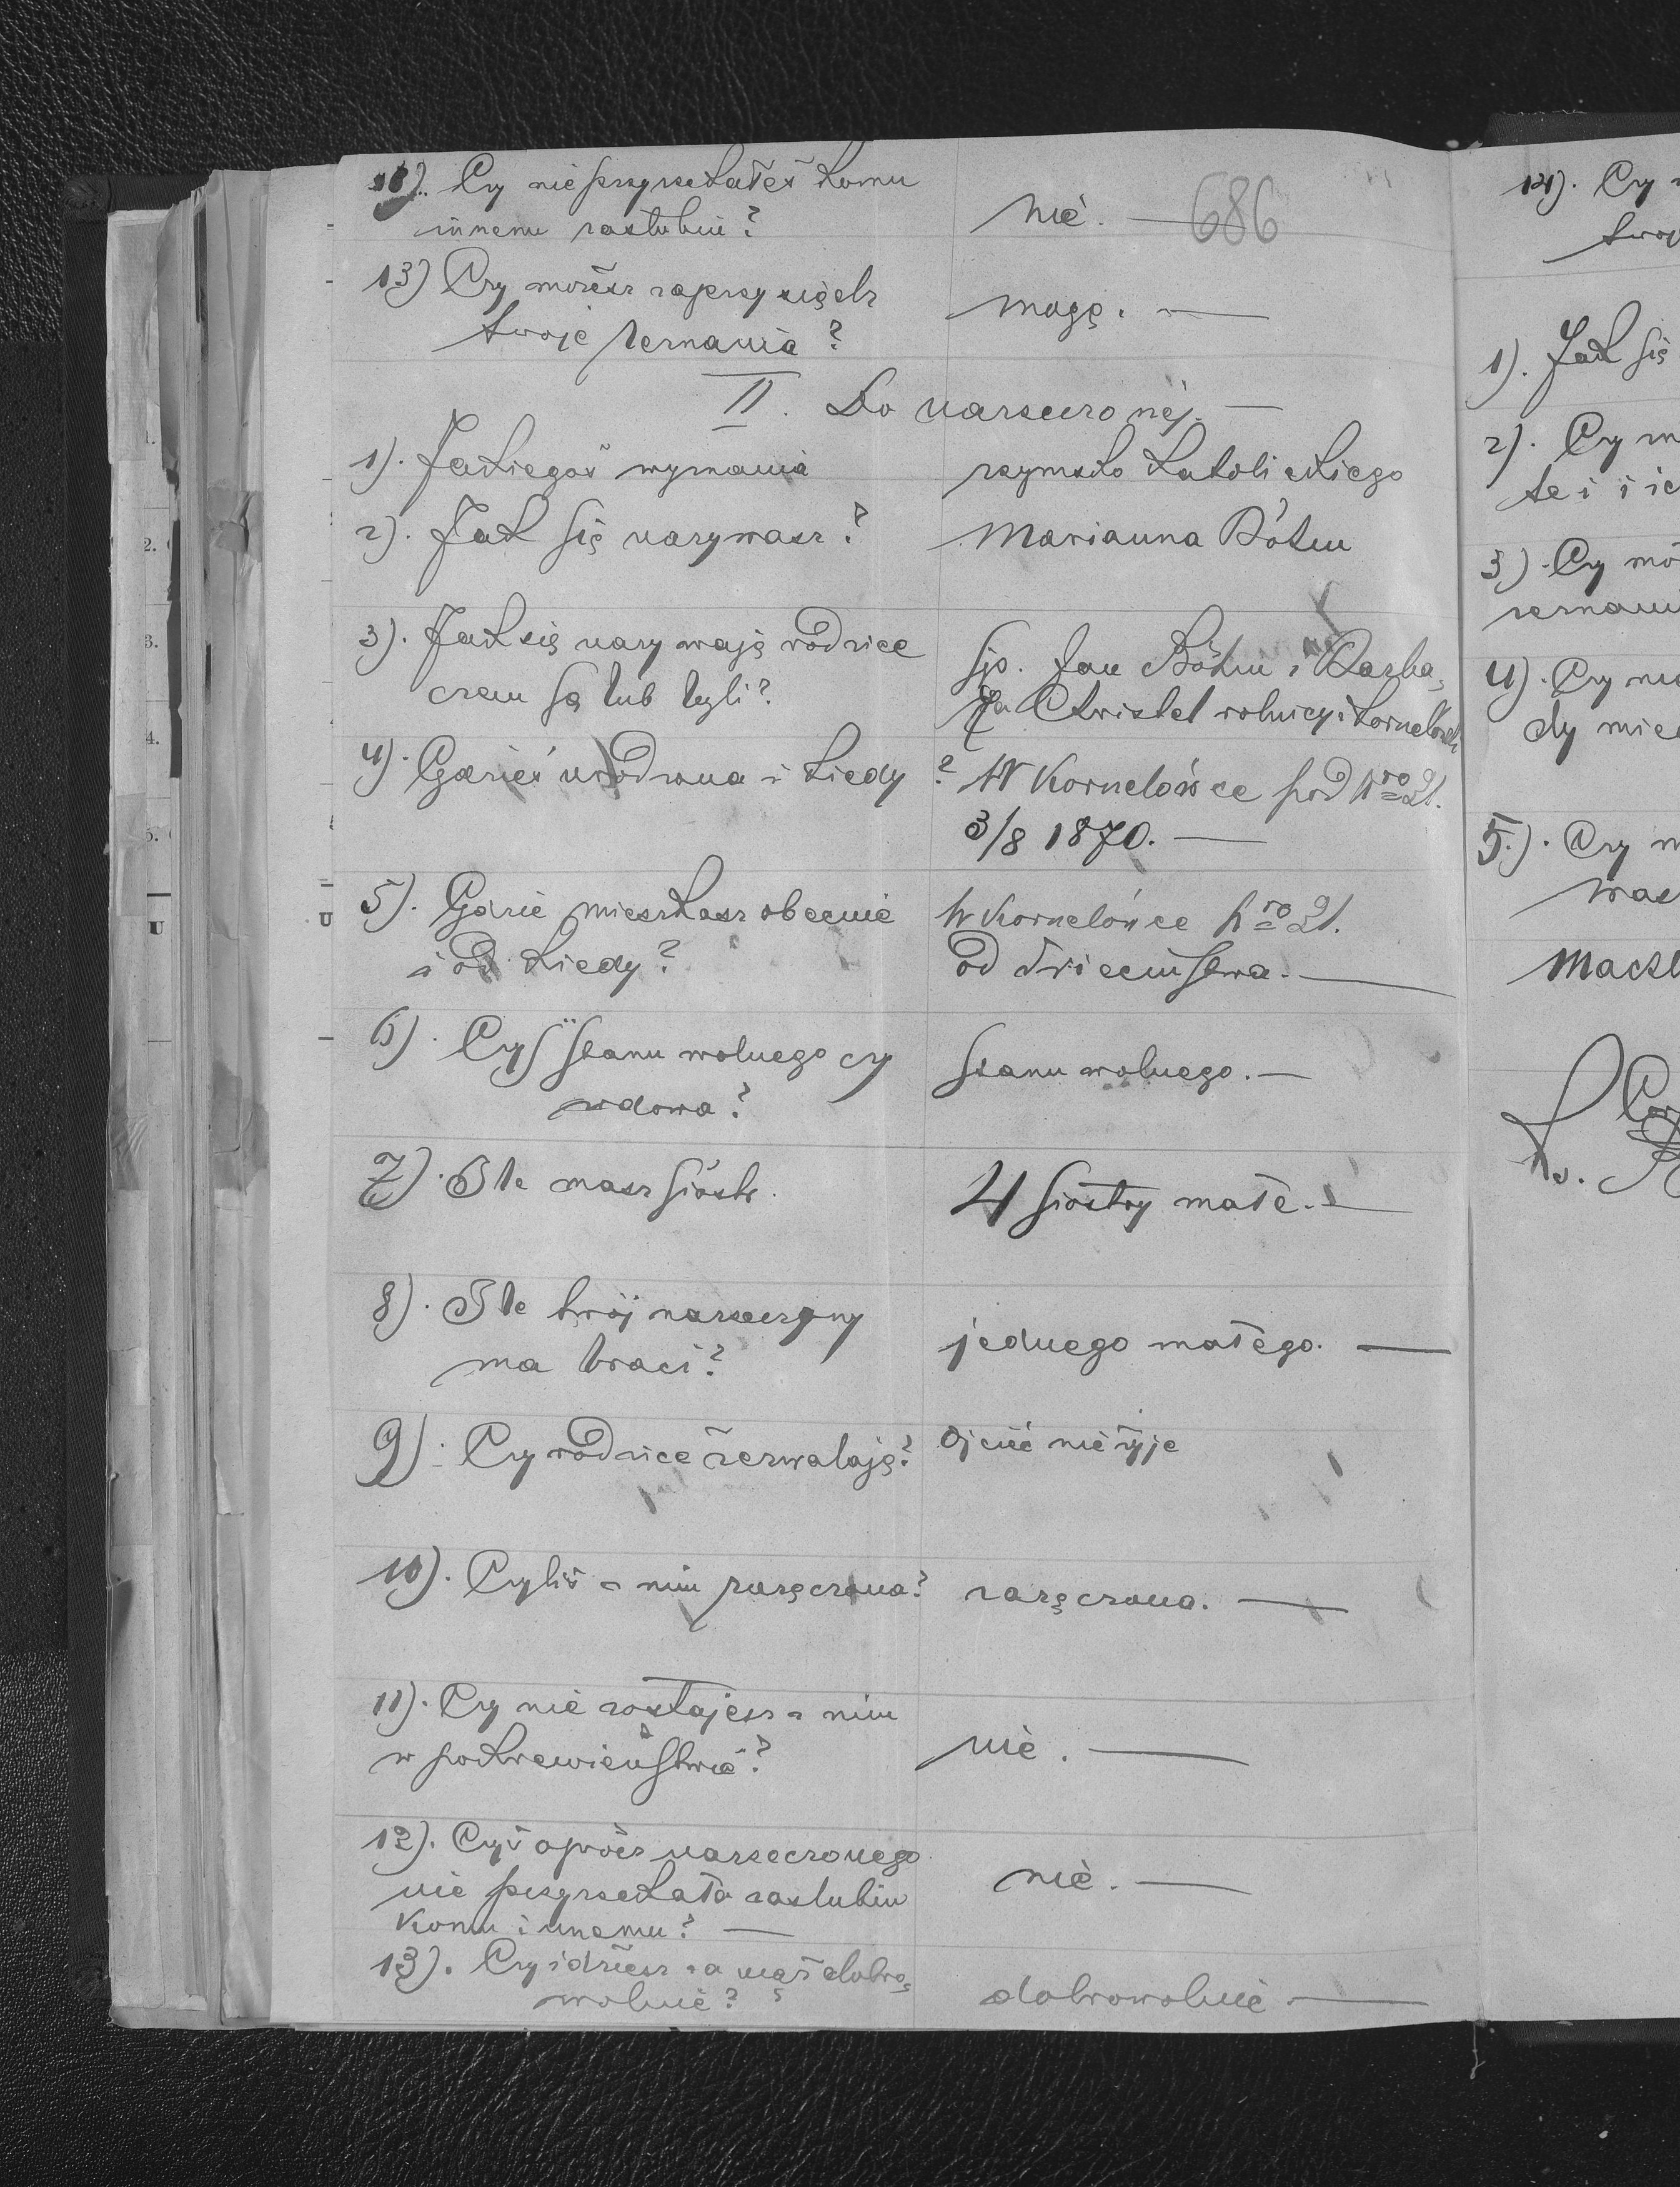 12). Czy nie przyrzekałeś komu
innemu zaślubin?
nie. —
686
13) Czy możesz zaprzysiędz
twoje zeznania?
mogę. —
II. Do narzeczonéj. —
1). Jakiegoś wyznania
rzymsko katolickiego
2). Jak się nazywasz?
Marianna Böhm
3). Jak się nazywają rodzice
czem są lub byli?
śp. Jan Böhm i Barba-
ra Christel rolnicy z Kornelówki
4). Gdzieś urodzona i kiedy?
W Kornelówce pod Nro 21.
3/8 1870. —
5). Gdzie mieszkasz obecnie
i od kiedy?
W Kornelówce Nro 21.
od dzieciństwa. —
6). Czyś stanu wolnego czy
wdowa?
stanu wolnego. —
7). Ile masz sióstr.
4 siostry małe. —
8). Ile twój narzeczony
ma braci?
jednego małego. —
9). Czy rodzice zezwalają?
Ojciec nie żyje
10). Czyliś z nim zaręczona?
zaręczona. —
11). Czy nie zostajesz z nim
w pokrewieństwie?
nie. —
12). Czyś oprócz narzeczonego
nie przyrzekała zaślubin
komu innemu? —
nie. —
13). Czy idziesz za mąż dobro-
wolnie?
dobrowolnie —
14). Czy
twoj
1). Jak się
2). Czy m
te i i ic
3). Czy mo
zeznan
4). Czy ma
dy mied
5.). Czy n
was
U
U
2.
3.
4.
5.